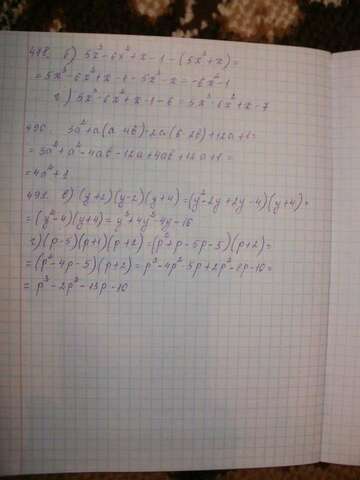 478. б) 5x³-6x²+x-1-(5x³+x)=
=5x³-6x²+x-1-5x³-x=-6x²-1
г) 5x³-6x²+x-1-6=5x³-6x²+x-7
490. 3a²+a(a-4b)-2a(6-2b)+12a+1=
=3a²+a²-4ab-12a+4ab+12a+1=
=4a²+1
в) (y+2)(y-2)(y+4)=(y²-2y+2y-4)(y+4)=
=(y²-4)(y+4)=y³+4y²-4y-16
г) (p-5)(p+1)(p+2)=(p²+p-5p-5)(p+2)=
=(p²-4p-5)(p+2)=p³-4p²-5p+2p²-8p-10=
=p³-2p²-13p-10